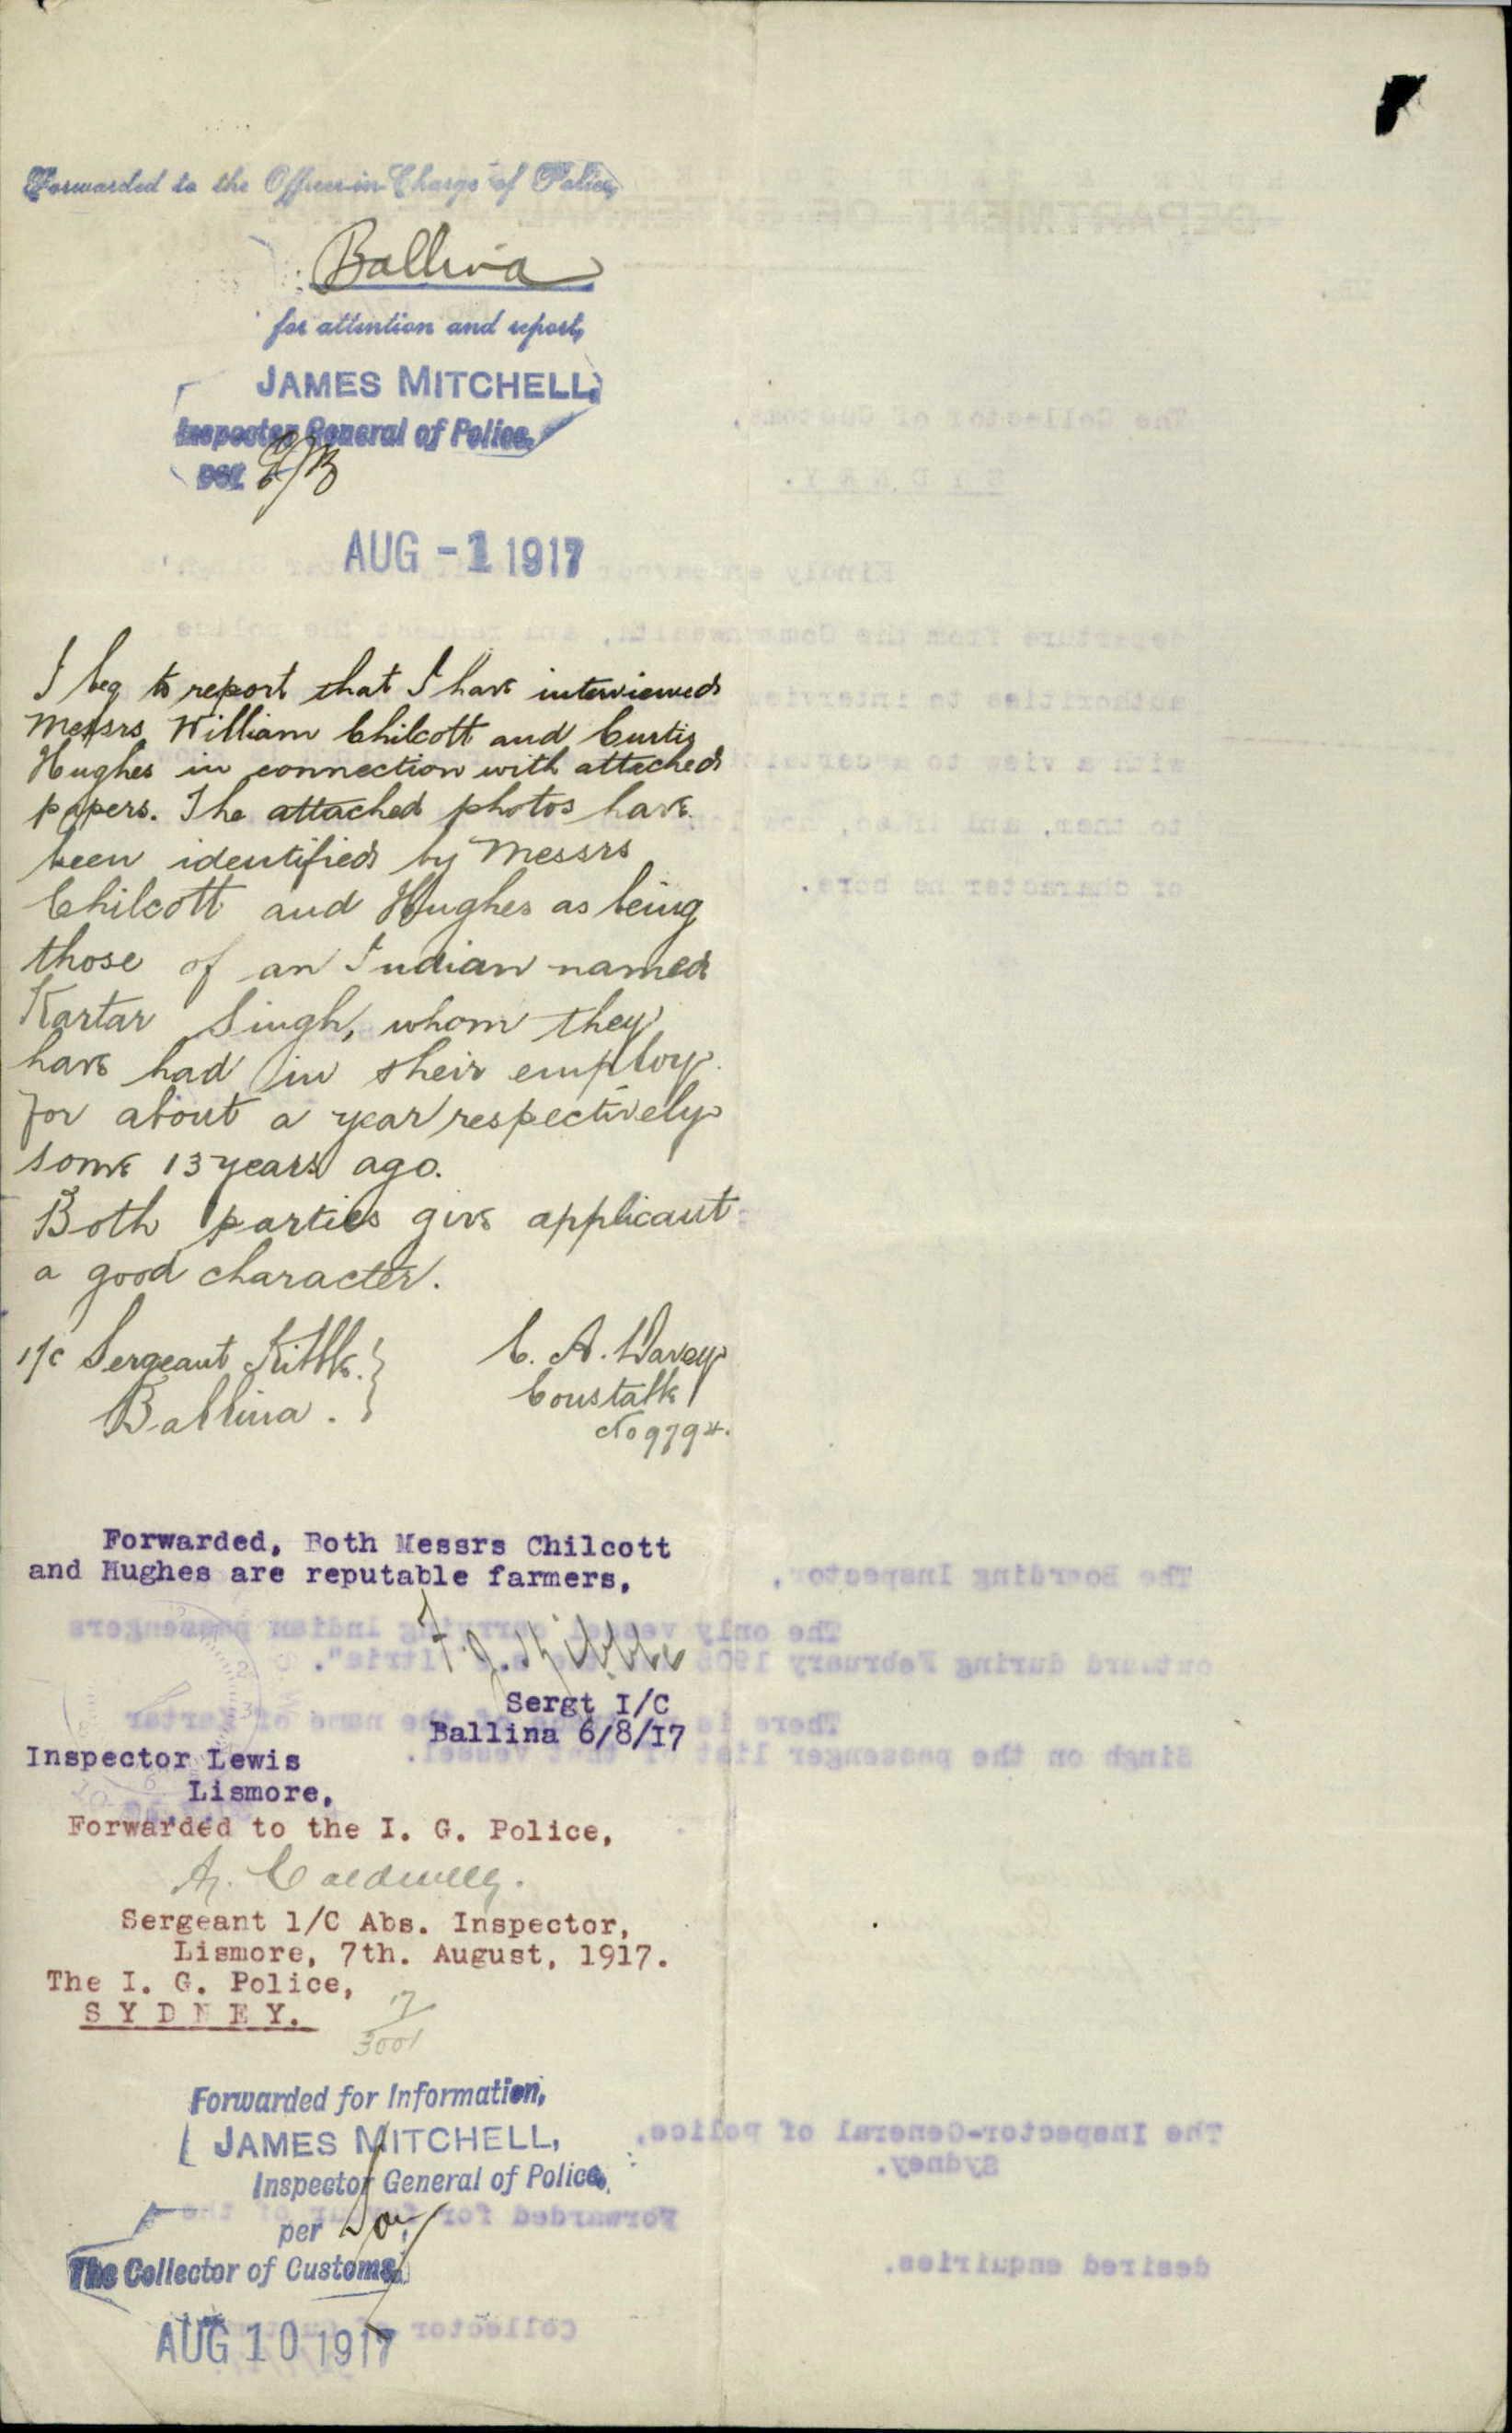 Forwarded to the Officer-in-Charge of Police,
Ballina
for attention and report,
JAMES MITCHELL,
Inspector General of Police,
per
AUG -1 1917
I beg to report that I have interviewed
Messrs William Chilcott and Curtis
Hughes in connection with attached
papers. The attached photos have
been identified by Messrs
Chilcott and Hughes as being
those of an Indian named
Kartar Singh, whom they
have had in their employ
for about a year respectively
some 13 years ago.
Both parties give applicant
a good character.
I/C Sergeant Kibble.
Ballina.
C. A. Davey
Constable
No 9794.
Forwarded, Both Messrs Chilcott
and Hughes are reputable farmers,
F. J. Kibble
Sergt I/C
Ballina 6/8/17
Inspector Lewis
Lismore,
Forwarded to the I. G. Police,
A. Caldwell.
Sergeant 1/C Abs. Inspector,
Lismore, 7th. August, 1917.
The I. G. Police,
SYDNEY.
17
3001
Forwarded for Information,
JAMES MITCHELL,
Inspector General of Police,
per
The Collector of Customs
AUG 10 1917